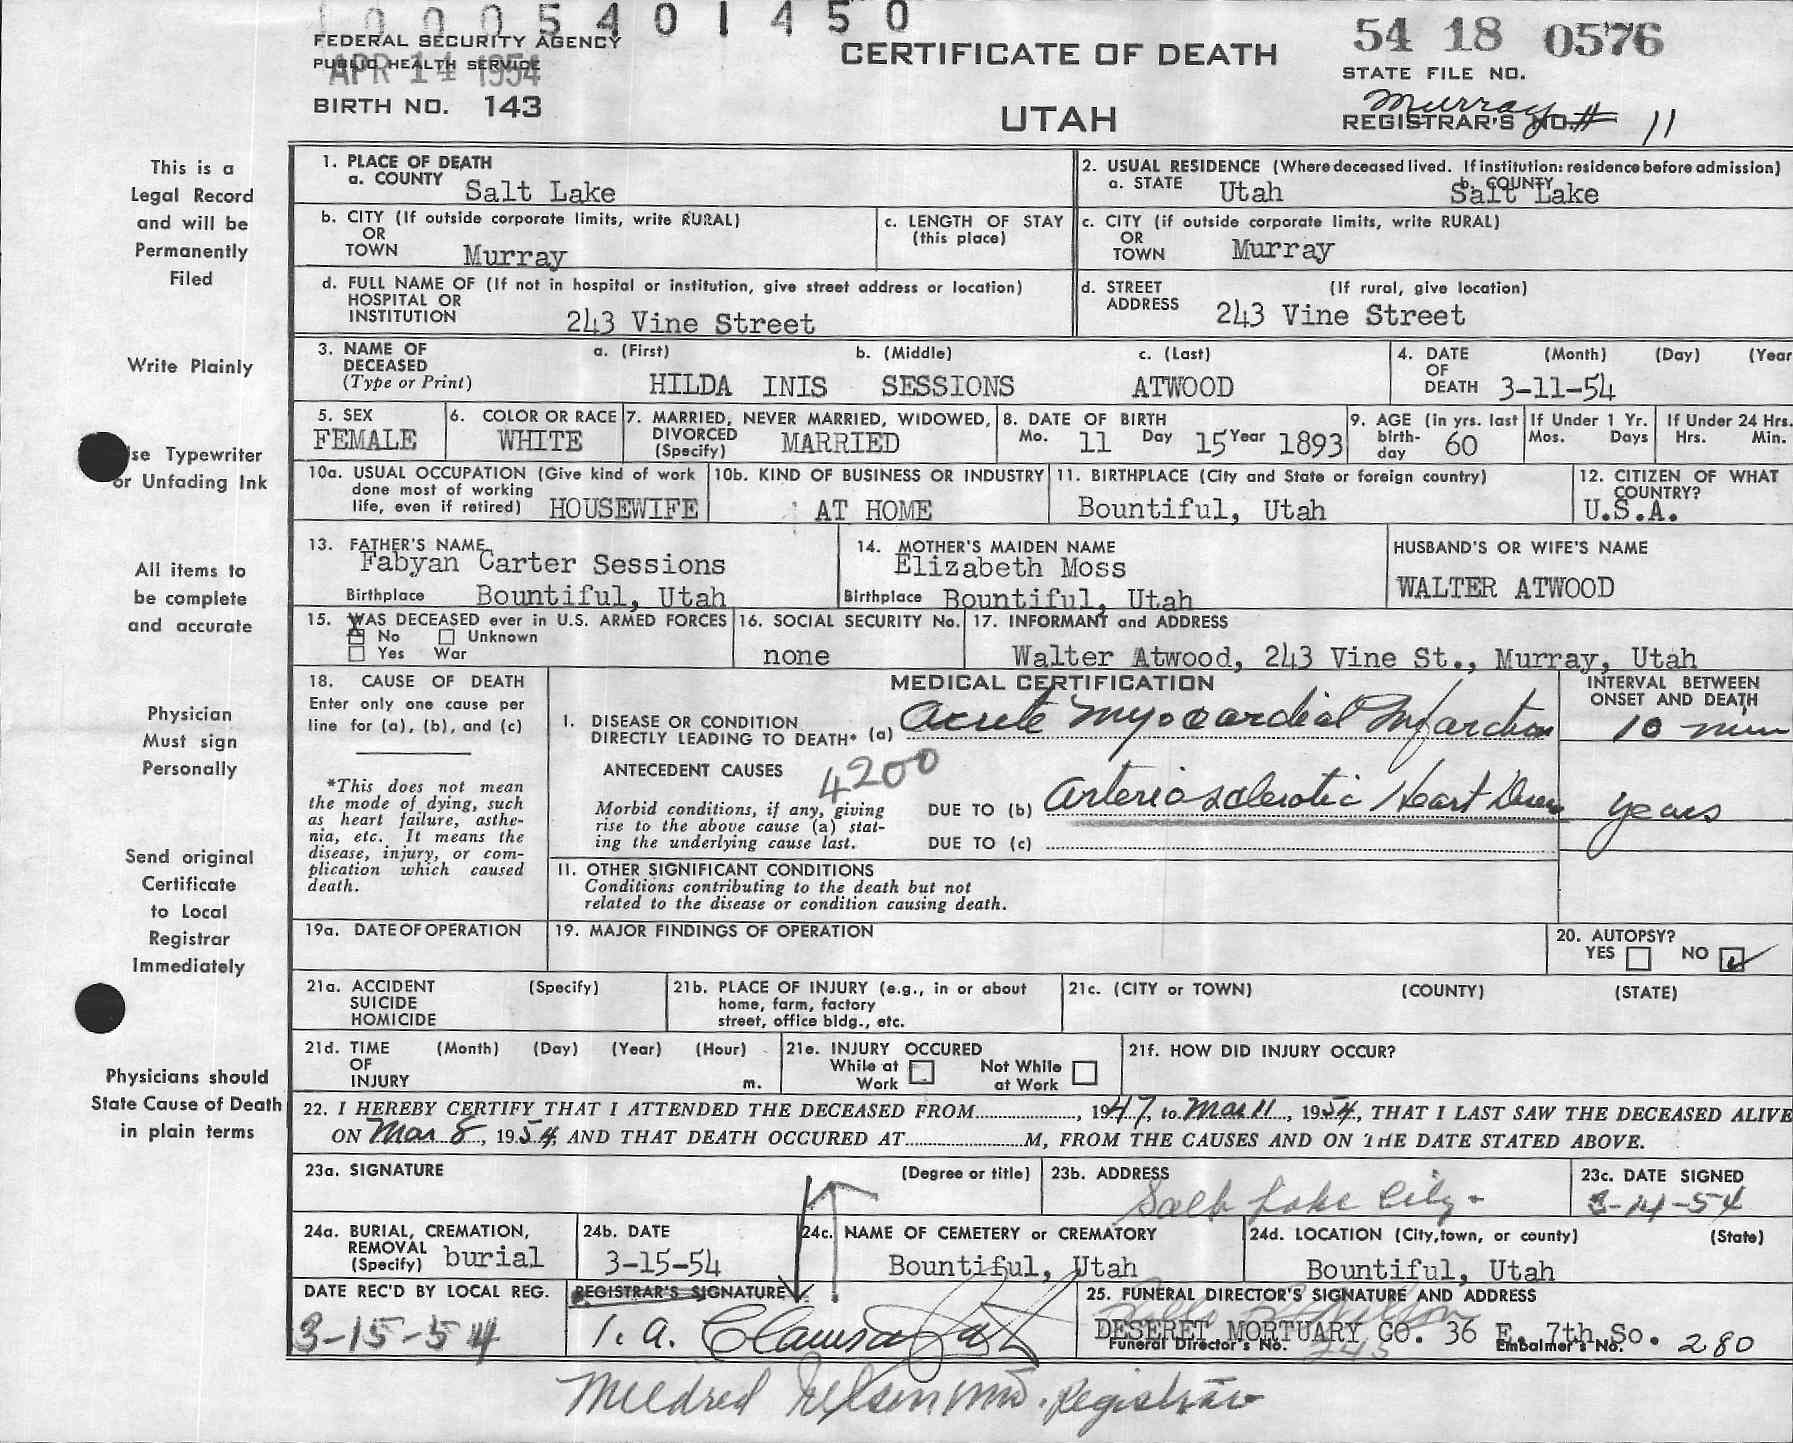 0 0 0 5 4 0 1 4 5 0
FEDERAL SECURITY AGENCY
PUBLIC HEALTH SERVICE
APR 14 1954
BIRTH NO. 143
CERTIFICATE OF DEATH
UTAH
54 18 0576
STATE FILE NO.
Murray
REGISTRAR'S NO. # 11
This is a
Legal Record
and will be
Permanently
Filed
Write Plainly
se Typewriter
or Unfading Ink
All items to
be complete
and accurate
Physician
Must sign
Personally
Send original
Certificate
to Local
Registrar
Immediately
Physicians should
State Cause of Death
in plain terms
1. PLACE OF DEATH
a. COUNTY Salt Lake
2. USUAL RESIDENCE (Where deceased lived. If institution: residence before admission)
a. STATE Utah b. COUNTY Salt Lake
b. CITY (If outside corporate limits, write RURAL)
OR
TOWN Murray
c. LENGTH OF STAY
(this place)
c. CITY (if outside corporate limits, write RURAL)
OR
TOWN Murray
d. FULL NAME OF (If not in hospital or institution, give street address or location)
HOSPITAL OR
INSTITUTION 243 Vine Street
d. STREET (If rural, give location)
ADDRESS 243 Vine Street
3. NAME OF a. (First) b. (Middle) c. (Last)
DECEASED
(Type or Print) HILDA INIS SESSIONS ATWOOD
4. DATE (Month) (Day) (Year
OF
DEATH 3-11-54
5. SEX
FEMALE
6. COLOR OR RACE
WHITE
7. MARRIED, NEVER MARRIED, WIDOWED,
DIVORCED MARRIED
(Specify)
8. DATE OF BIRTH
Mo. 11 Day 15 Year 1893
9. AGE (in yrs. last
birth-
day 60
If Under 1 Yr.
Mos. Days
If Under 24 Hrs.
Hrs. Min.
10a. USUAL OCCUPATION (Give kind of work
done most of working
life, even if retired) HOUSEWIFE
10b. KIND OF BUSINESS OR INDUSTRY
AT HOME
11. BIRTHPLACE (City and State or foreign country)
Bountiful, Utah
12. CITIZEN OF WHAT
COUNTRY?
U.S.A.
13. FATHER'S NAME
Fabyan Carter Sessions
Birthplace Bountiful, Utah
14. MOTHER'S MAIDEN NAME
Elizabeth Moss
Birthplace Bountiful, Utah
HUSBAND'S OR WIFE'S NAME
WALTER ATWOOD
15. WAS DECEASED ever in U.S. ARMED FORCES
X No Unknown
Yes War
16. SOCIAL SECURITY No.
none
17. INFORMANT and ADDRESS
Walter Atwood, 243 Vine St., Murray, Utah
18. CAUSE OF DEATH
Enter only one cause per
line for (a), (b), and (c)
*This does not mean
the mode of dying, such
as heart failure, asthe-
nia, etc. It means the
disease, injury, or com-
plication which caused
death.
MEDICAL CERTIFICATION
INTERVAL BETWEEN
ONSET AND DEATH
I. DISEASE OR CONDITION
DIRECTLY LEADING TO DEATH* (a) Acute Myocardial Infarction 10 min
ANTECEDENT CAUSES 4200
Morbid conditions, if any, giving
rise to the above cause (a) stat-
ing the underlying cause last.
DUE TO (b) Arteriosclerotic Heart Disease years
DUE TO (c)
II. OTHER SIGNIFICANT CONDITIONS
Conditions contributing to the death but not
related to the disease or condition causing death.
19a. DATE OF OPERATION
19. MAJOR FINDINGS OF OPERATION
20. AUTOPSY?
YES NO ✓
21a. ACCIDENT (Specify)
SUICIDE
HOMICIDE
21b. PLACE OF INJURY (e.g., in or about
home, farm, factory
street, office bldg., etc.
21c. (CITY or TOWN) (COUNTY) (STATE)
21d. TIME (Month) (Day) (Year) (Hour)
OF
INJURY m.
21e. INJURY OCCURED
While at Not While
Work at Work
21f. HOW DID INJURY OCCUR?
22. I HEREBY CERTIFY THAT I ATTENDED THE DECEASED FROM............, 1947, to Mar 11, 1954, THAT I LAST SAW THE DECEASED ALIVE
ON Mar 8, 1954, AND THAT DEATH OCCURED AT............M, FROM THE CAUSES AND ON THE DATE STATED ABOVE.
23a. SIGNATURE (Degree or title)
23b. ADDRESS
Salt Lake City -
23c. DATE SIGNED
3-14-54
24a. BURIAL, CREMATION,
REMOVAL
(Specify) burial
24b. DATE
3-15-54
24c. NAME OF CEMETERY or CREMATORY
Bountiful, Utah
24d. LOCATION (City, town, or county) (State)
Bountiful, Utah
DATE REC'D BY LOCAL REG.
3-15-54
REGISTRAR'S SIGNATURE
25. FUNERAL DIRECTOR'S SIGNATURE AND ADDRESS
DESERET MORTUARY CO. 36 E. 7th So.
Funeral Director's No. 245 Embalmer's No. 280
Mildred Registrar